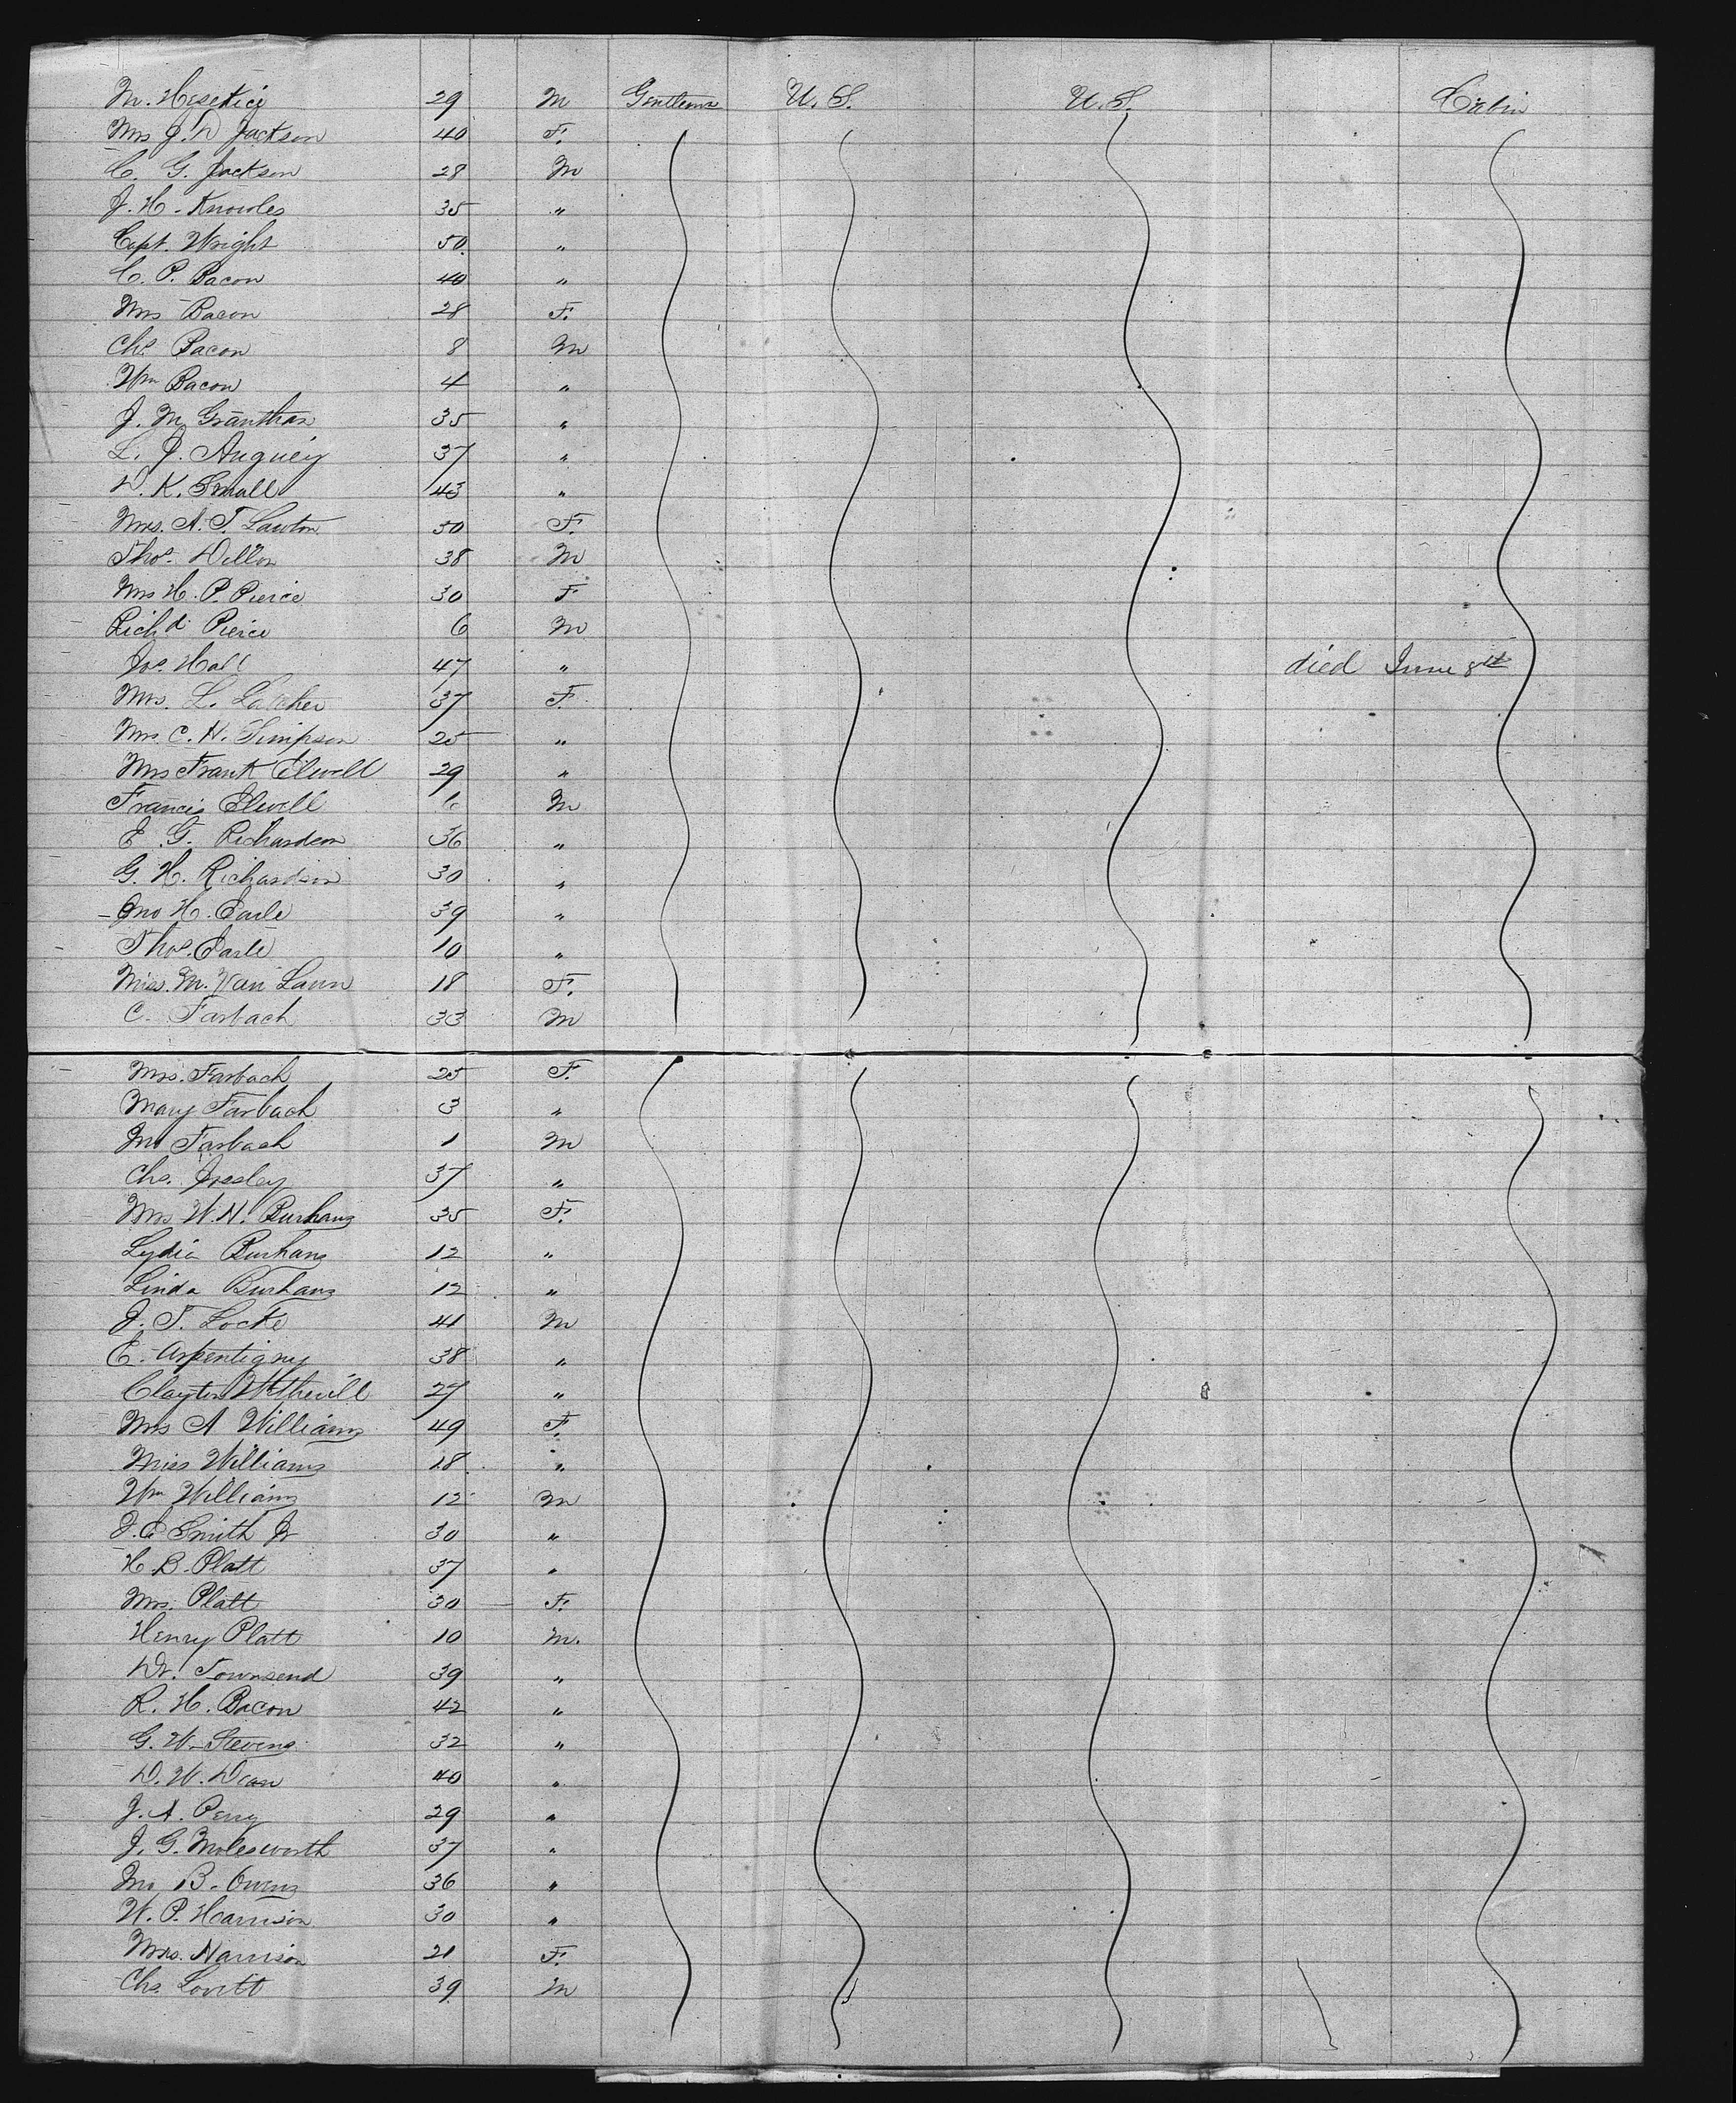 M. 29 M Gentleman U.S. U.S. Cabin
Mrs J. D Jackson 40 F.
C. G. Jackson 28 M
J. H. Knowles 35 "
Capt. Wright 50 "
C. P. Bacon 40 "
Mrs Bacon 28 F.
Chs Bacon 8 M
Wm Bacon 4 "
J. M. Grantham 35 "
L. J. 37 "
D. K. Small 43 "
Mrs. A. T. Lawton 50 F.
Thos. Dillon 38 M
Mrs H. P. Pierce 30 F
Richd. Pierce 6 M
Jos. Hall 47 " died June 8th
Mrs. L. 37 F.
Mrs. C. H. Simpson 25 "
Mrs Frank Elwell 29 "
Francis Elwell 6 M
E. G. Richardson 36 "
G. H. Richardson 30 "
Jno H. Earle 39 "
Thos. Earle 10 "
Miss. M. Van Laun 18 F.
C. Farbach 33 M
Mrs. Farbach 25 F.
Mary Farbach 3 "
M Farbach 1 M
Chs. 37 "
Mrs W. H. Burhans 35 F.
Lydia Burhans 12 "
Linda Burhans 12 "
J. T. Locke 41 M
E. Arpentigny 38 "
Clayton 27 "
Mrs A Williams 49 F.
Miss Williams 18 "
Wm Williams 12 M
J. E Smith Jr 30 "
H. B. Platt 37 "
Mrs. Platt 30 F.
Henry Platt 10 M.
Dr. Townsend 39 "
R. H. Bacon 42 "
G. W. Stevens 32 "
D. W. Dean 40 "
J. A. Perry 29 "
J. G. Molesworth 37 "
Jno B. Owens 36 "
W. P. Harrison 30 "
Mrs. Harrison 21 F.
Chs. Lovett 39 M